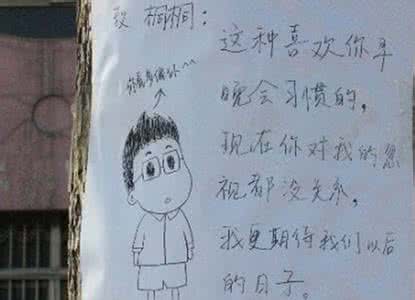 致 桐桐：
这种喜欢你早
晚会习惯的,
现在你对我的忽
视都没关系,
我更期待我们以后
的日子。